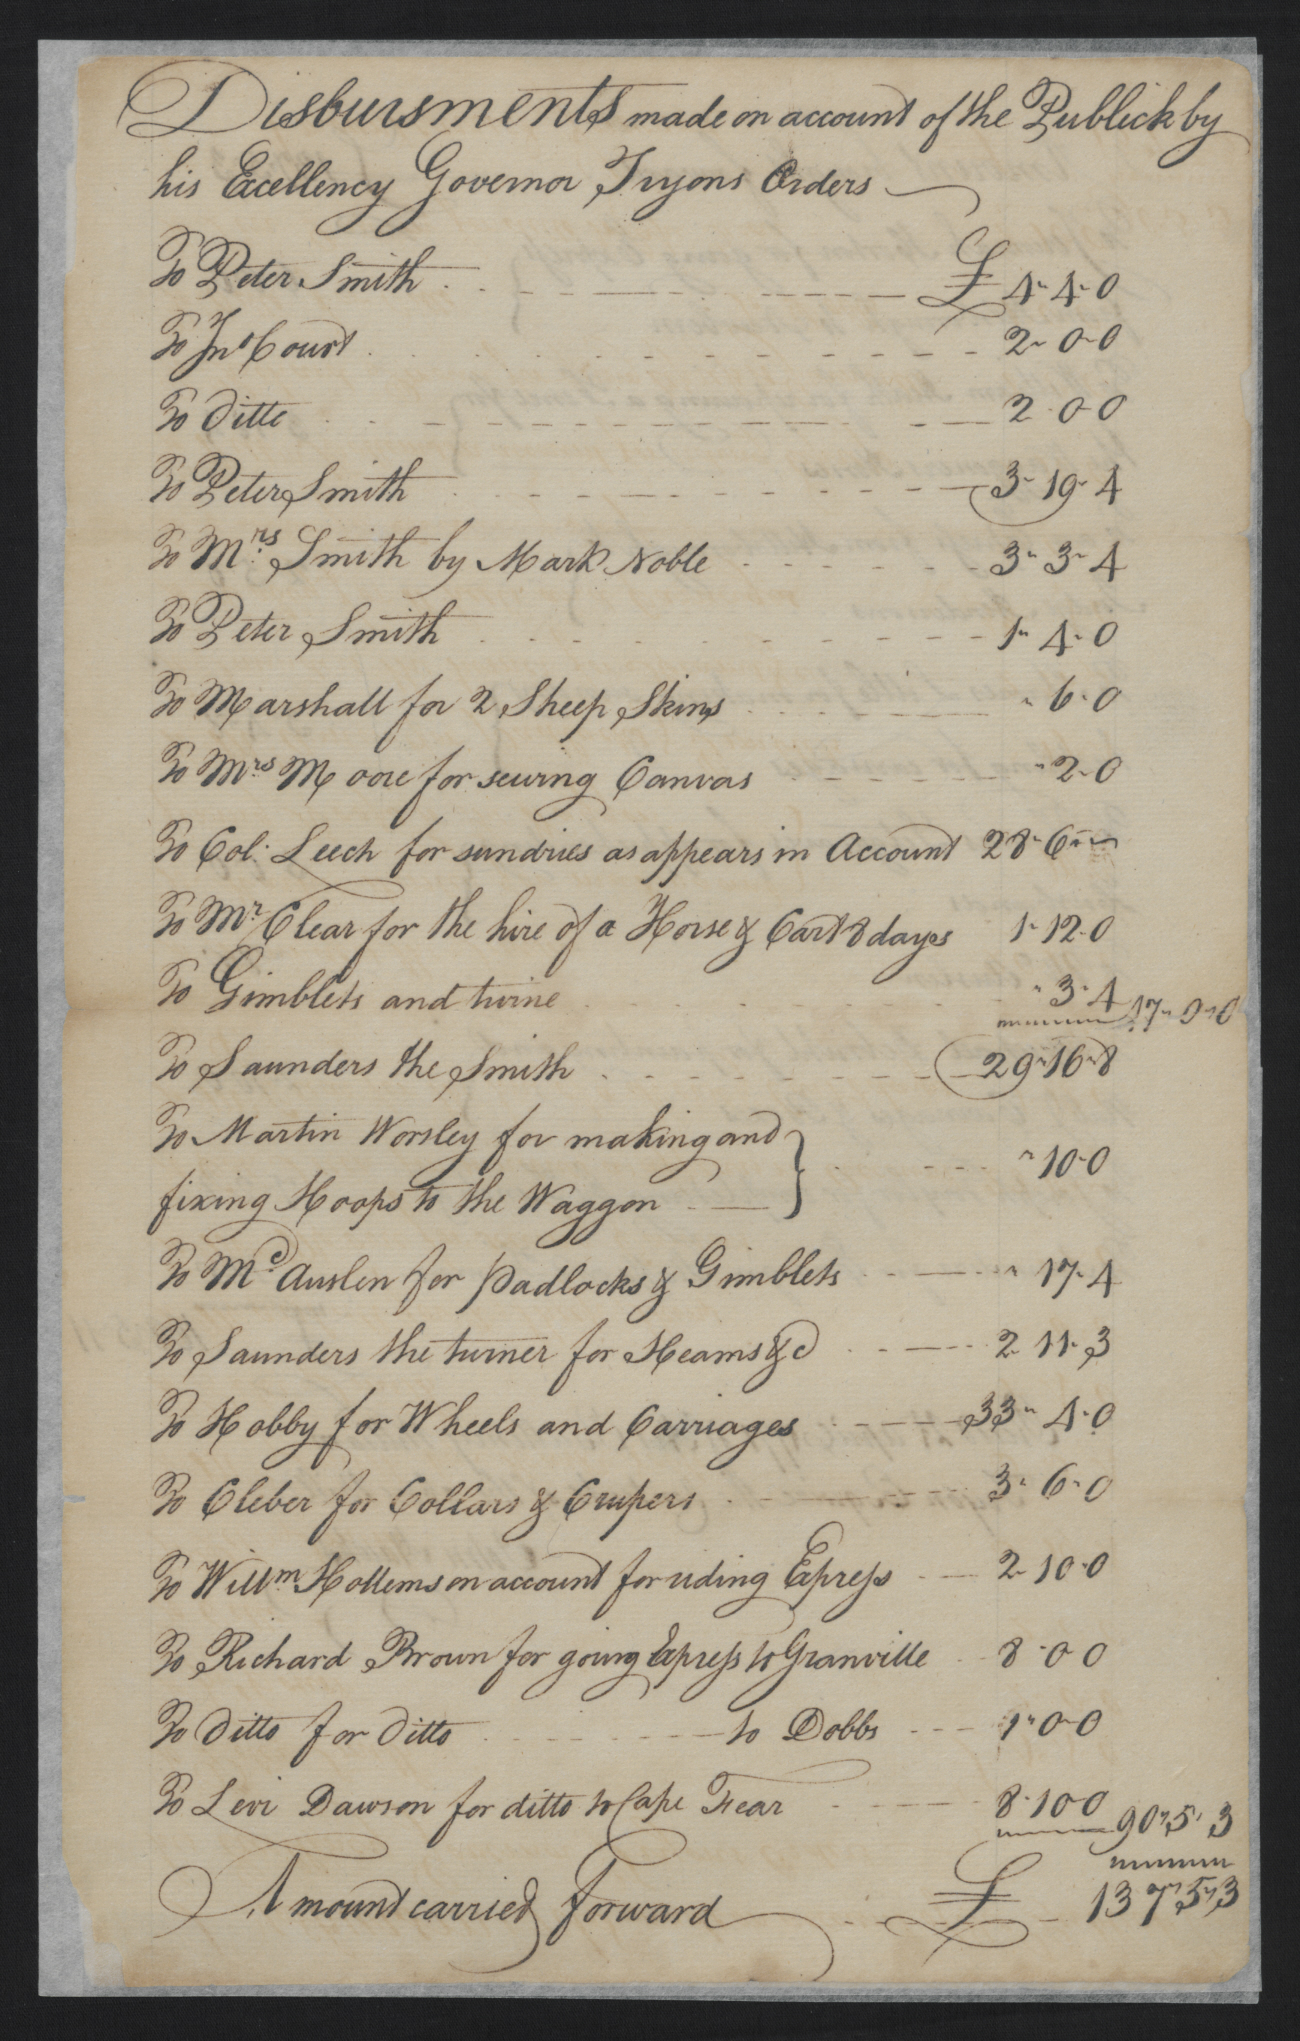 Disbursments made on account of the Publick by
his Excellency Governor Tryons Orders
To Peter Smith £ 4 " 4 " 0
To Jno Court 2 " 0 " 0
To Ditto 2 " 0 " 0
To Peter Smith 3 " 19 " 4
To Mrs Smith by Mark Noble 3 " 3 " 4
To Peter Smith 1 " 4 " 0
To Marshall for 2 Sheep Skins " 6 " 0
To Mrs Moore for sewing Canvas " 2 " 0
To Col: Leech for sundries as appears in Account 28 " 6 " "
To Mr Clear for the hire of a Horse & Cart 8 days 1 " 12 " 0
To Gimblets and twine " 3 " 4
17 " 0 " 0
To Saunders the Smith 29 " 16 " 8
To Martin Worsley for making and
fixing Hoops to the Waggon " 10 " 0
To Mc Auslen for Padlocks & Gimblets " 17 " 4
To Saunders the turner for Heams &c 2 " 11 " 3
To Hobby for Wheels and Carriages 33 " 4 " 0
To Cleber for Collars & Crupers 3 " 6 " 0
To Willm Hollems on account for riding Express 2 " 10 " 0
To Richard Brown for going Express to Granville 8 " 0 " 0
To Ditto for Ditto to Dobbs 1 " 0 " 0
To Levi Dawson for ditto to Cape Fear 8 " 10 " 0
90 " 5 " 3
Amount carried forward £ 137 " 5 " 3